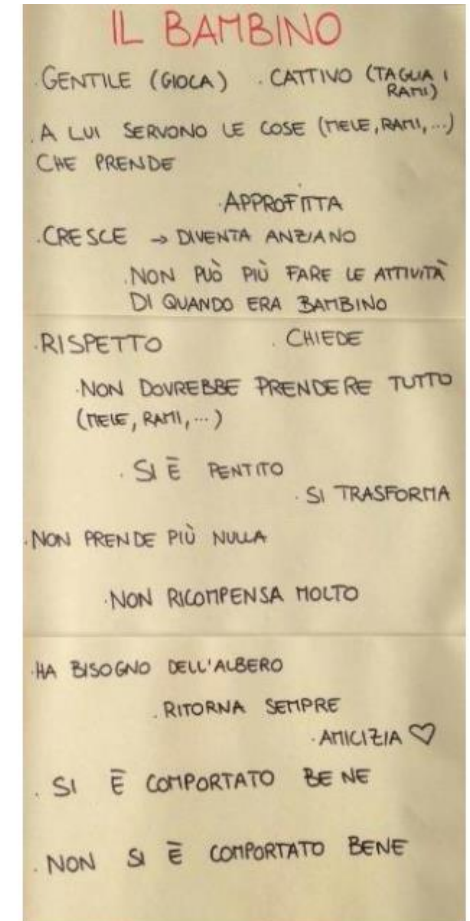 IL BAMBINO
. GENTILE (GIOCA) . CATTIVO (TAGLIA I
RAMI)
. A LUI SERVONO LE COSE (MELE, RAMI, ...)
CHE PRENDE
. APPROFITTA
. CRESCE → DIVENTA ANZIANO
. NON PUÒ PIÙ FARE LE ATTIVITÀ
DI QUANDO ERA BAMBINO
. RISPETTO . CHIEDE
. NON DOVREBBE PRENDERE TUTTO
(MELE, RAMI, ...)
. SI È PENTITO
. SI TRASFORMA
. NON PRENDE PIÙ NULLA
. NON RICOMPENSA MOLTO
. HA BISOGNO DELL'ALBERO
. RITORNA SEMPRE
. AMICIZIA ♡
. SI È COMPORTATO BENE
. NON SI È COMPORTATO BENE